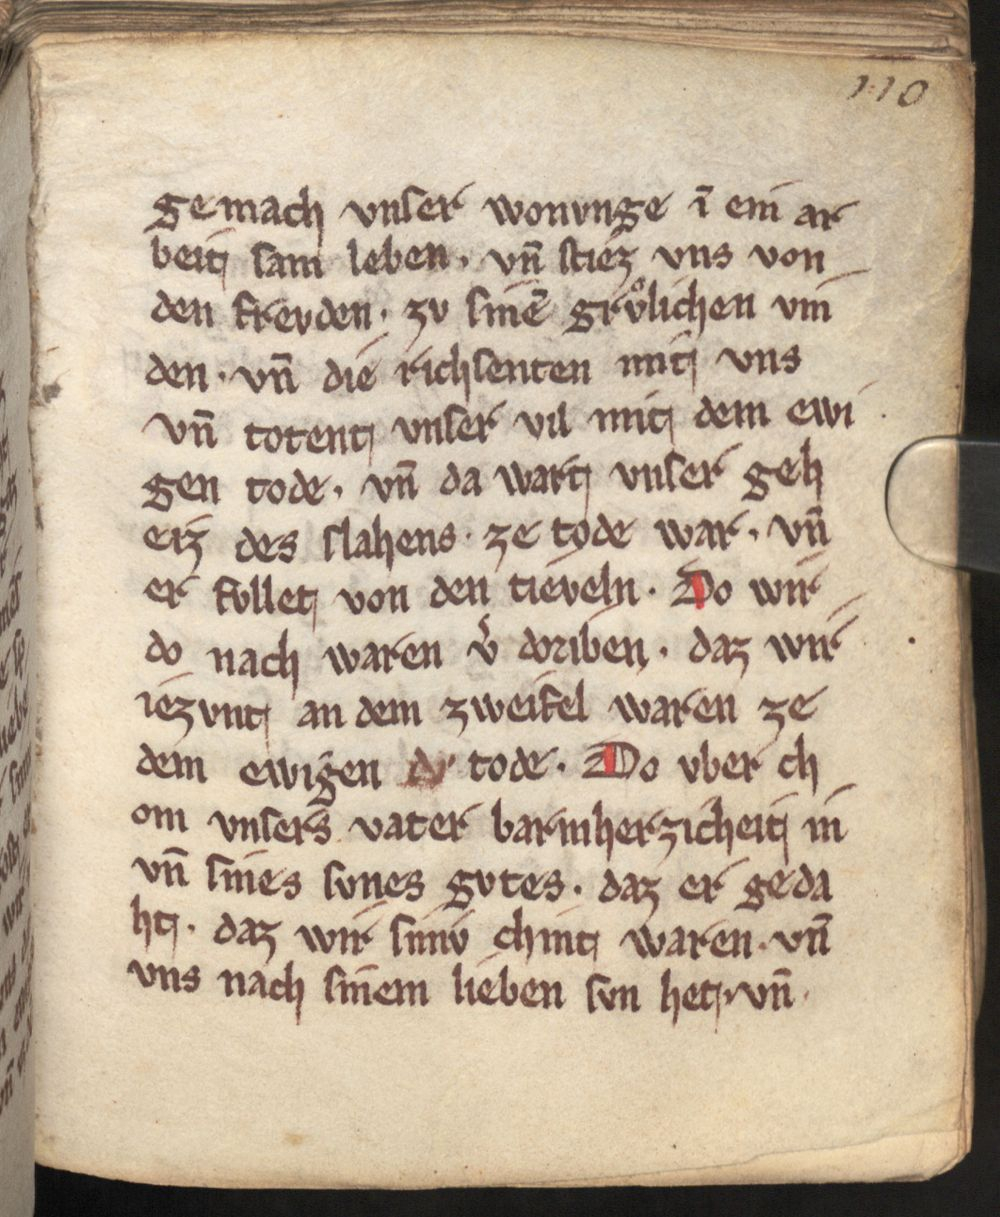 110
gemach vnser wonvnge ī ein ar
beit sam leben · vn̄ stiez vns von
den frevden · zv sinē grvͦlichen vin
den · vn̄ die richsenten mit vns
vn̄ totent vnser vil mit dem ewi
gen tode · vn̄ da wart vnser geh
eiz des slahens · ze tode war · vn̄
er fvllet von den tieveln · Do wir
do nach waren v̓ doriben · daz wir
iezvnt an dem zweifel waren ze
dem ewigen tode · Do vber ch
om vnsers vater barmherzicheit in
vn̄ sines svnes gvtes · daz er geda
ht · daz wir sinv chint waren · vn̄
vns nach sinem lieben svn het · vn̄